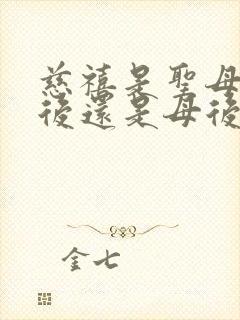 慈禧是聖母
後還是母後
金七